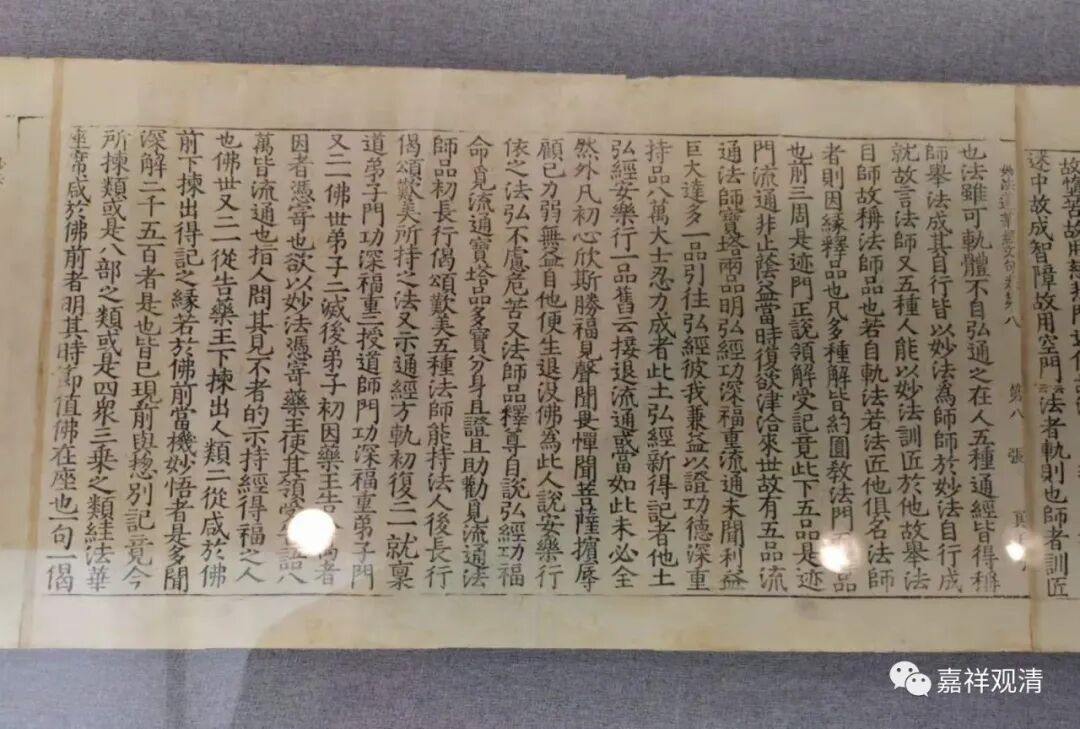 述中故成智障故用空門 法者軌則也師者訓匠
第八張
也法雖可軌體不自弘通之在人五種通經皆得稱
師舉法成其自行皆以妙法為師師於妙法自行成
就故言法師又五種人能以妙法訓匠於他故舉法
目師故稱法師品也若自軌法若法匠他俱名法師
者則因緣釋品也凡多種解皆約圓教法門品
也前三周是迹門正說領解受記竟此下五品是迹
門流通非止蔭益當時復欲津洽來世故有五品流
通法師寶塔兩品明弘經功深福重流通未聞利益
巨大達多一品引往弘經彼我兼益以證功德深重
持品八萬大士忍力成者此土弘經新得記者他土
弘經安樂行一品舊云接退流通或當如此未必全
然外凡初心欣斯勝福見聲聞畏憚聞菩薩擯辱
顧己力弱無益自他便生退沒佛為此人說安樂行
依之法弘不慮危苦又法師品釋尊自說弘經功福
命覓流通寶塔品多寶分身且證且助勸覓流通法
師品初長行偈頌歎美五種法師能持法人後長行
偈頌歎美所持之法又示通經方軌初復二一就稟
道弟子門功深福重二授道師門功深福重弟子門
又二一佛世弟子二滅後弟子初因藥王告萬者
因者憑寄也欲以妙法憑寄藥王使其領受語八
萬皆流通也指人問其見不者的示持經得福之人
也佛世又二一從告藥王下揀出人類二從咸於佛
前下揀出得記之緣若於佛前當機妙悟者是多聞
深解二千五百者是也皆已現前與摠別記竟今
所揀類或是八部之類或是四衆三乘之類絓法華
座席咸於佛前者明其時節值佛在座也一句一偈
嘉祥观清